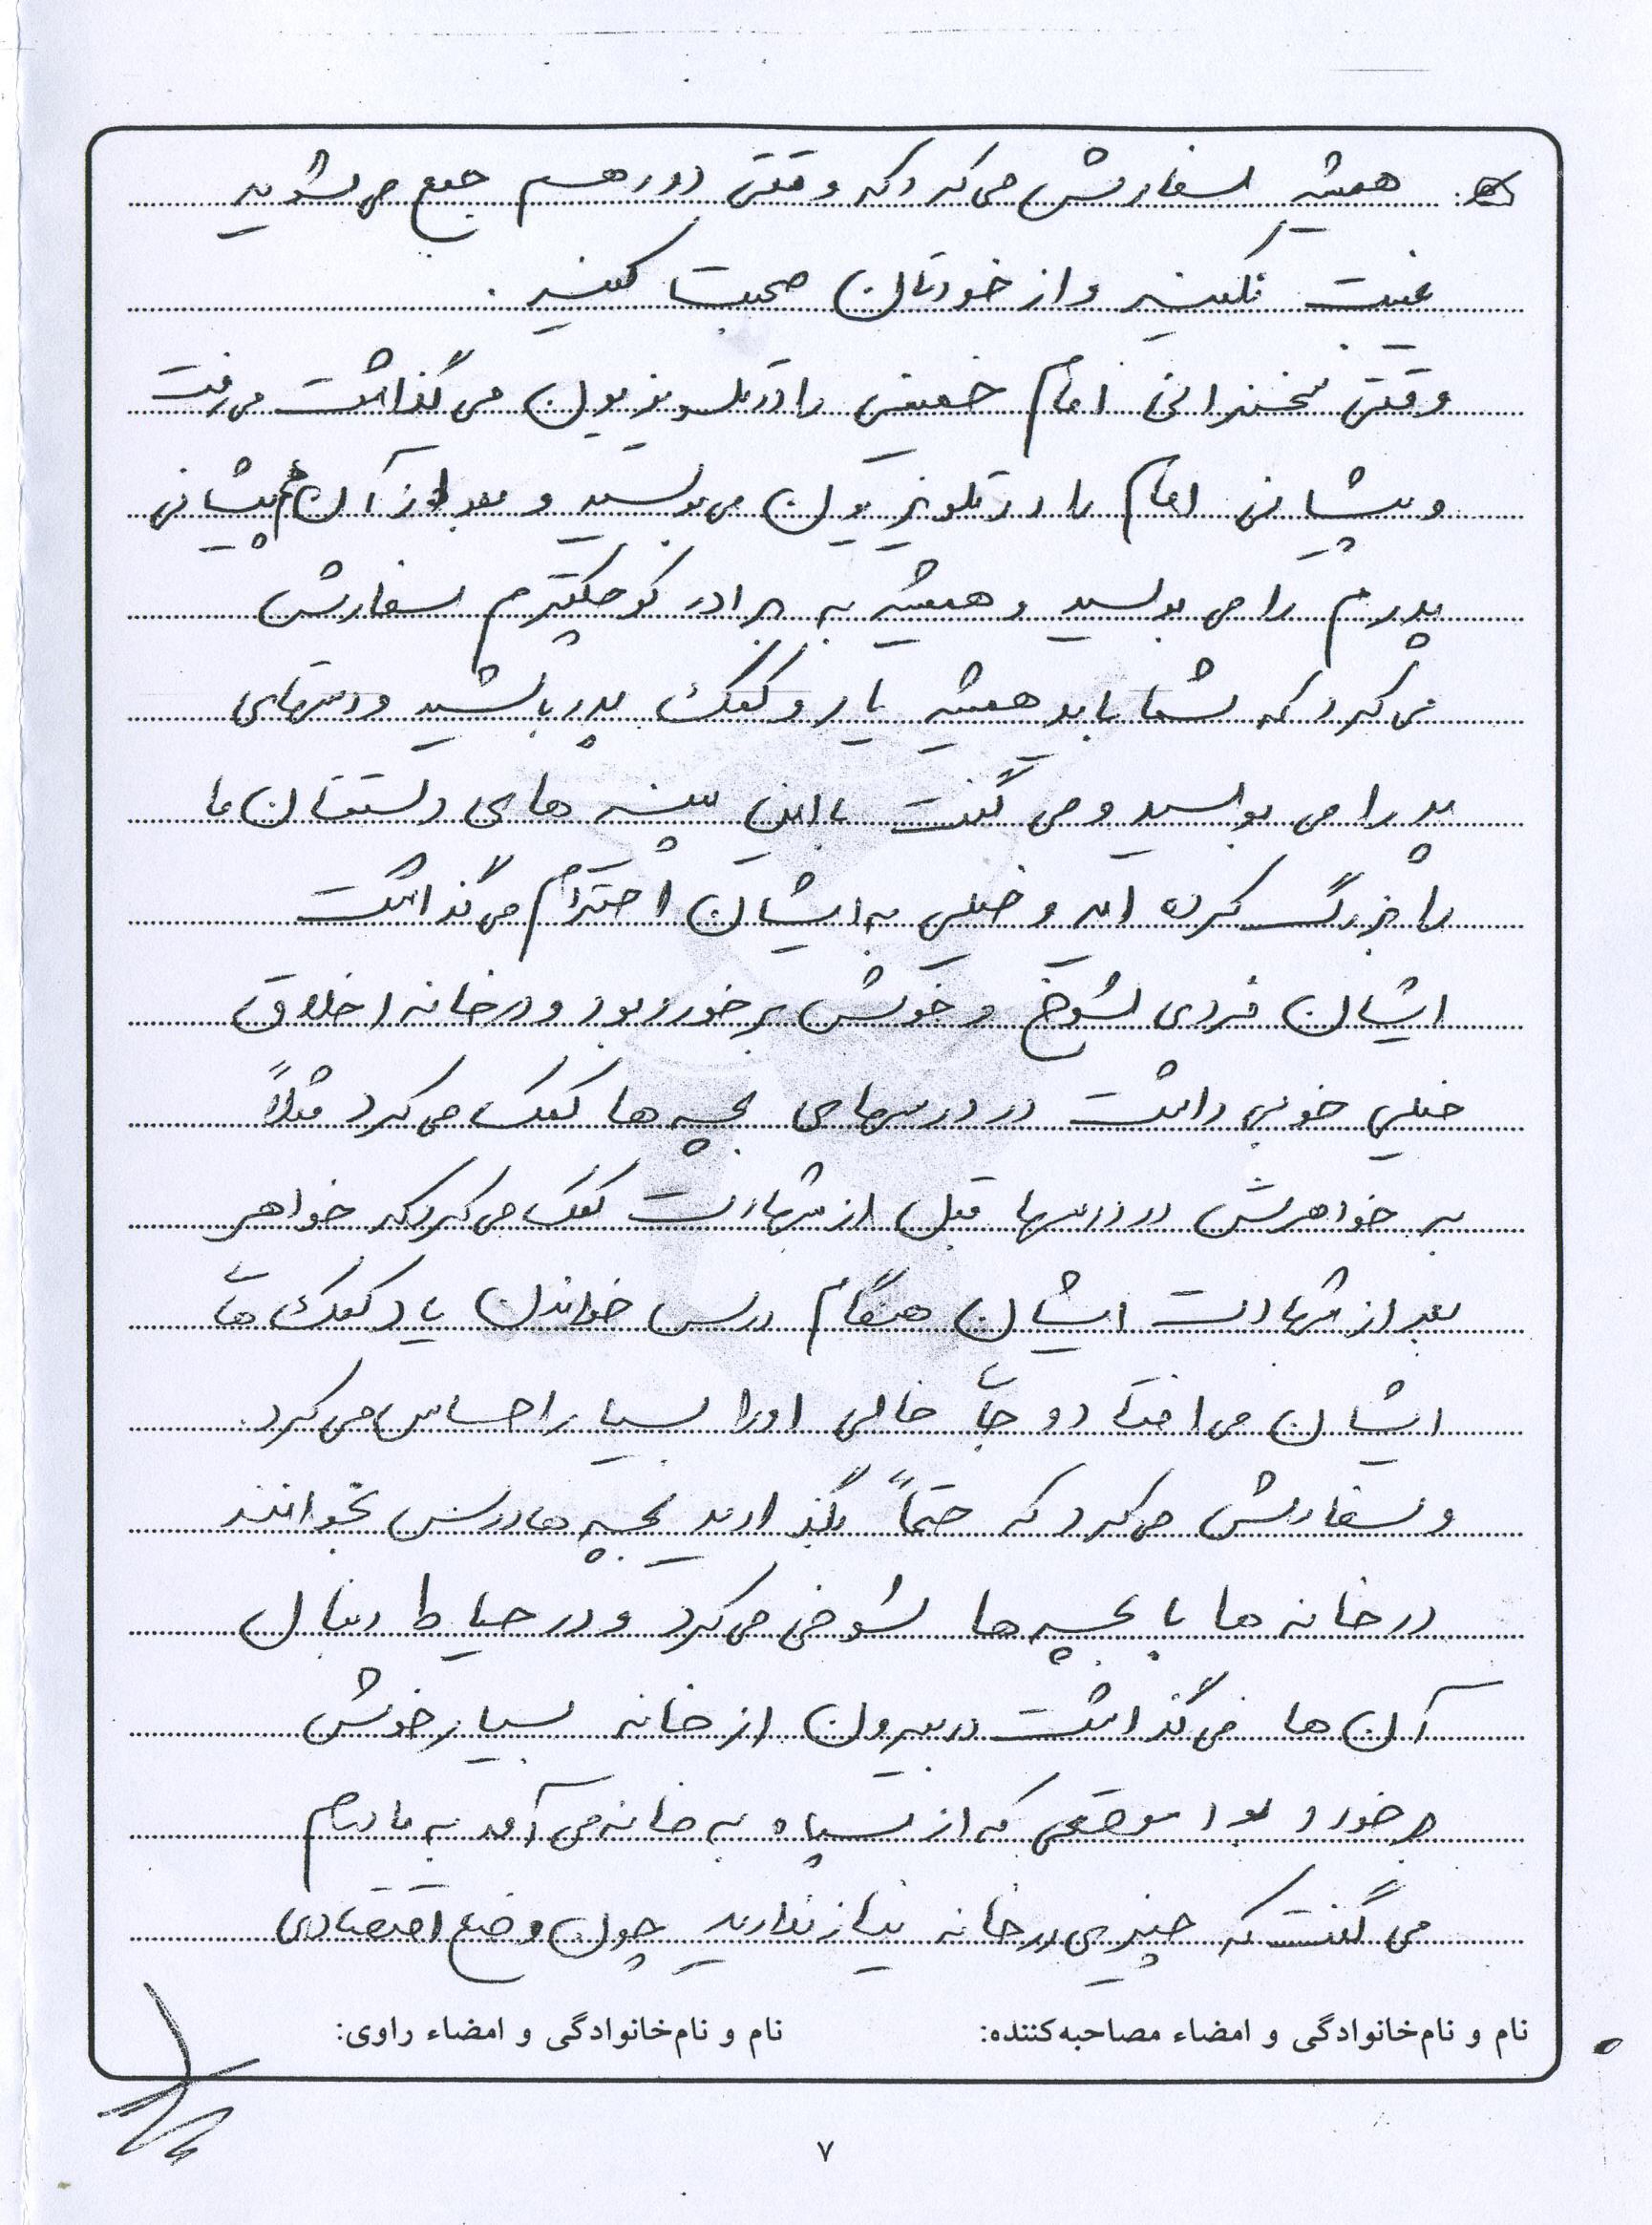 همیشه سفارش می‌کرد که وقتی دور هم جمع می‌شوید
غیبت نکنید و از خودتان صحبت کنید.
وقتی سخنرانی امام خمینی را در تلویزیون می‌گذاشت می‌رفت
و پیشانی امام را در تلویزیون می‌بوسید و بعد از آن هم پیشانی
پدرم را می بوسید و همیشه به برادر کوچکترم سفارش
می‌کرد که شما باید همیشه یار و کمک پدر باشید و دستهای
پدر را می بوسید و می گفت با این پینه های دستتان ما
را بزرگ کرده اید و خیلی به ایشان احترام می‌گذاشت
ایشان فردی شوخ و خوش برخورد بود و در خانه اخلاق
خیلی خوبی داشت در درسهای بچه ها کمک می‌کرد مثلاً
به خواهرش در درسها قبل از شهادت کمک می‌کرد که خواهر
بعد از شهادت ایشان هنگام درس خواندن یاد کمک های
ایشان می‌افتاد و جای خالی او را بسیار احساس می‌کرد.
و سفارش می‌کرد که حتماً بگذارید بچه ها درس بخوانند
در خانه ها با بچه ها شوخی می‌کرد و در حیاط دنبال
آن ها می‌گذاشت در بیرون از خانه بسیار خوش
برخورد بود موقعی که از سپاه به خانه می‌آمد به مادرم
می گفت که چیزی در خانه نیاز ندارید چون وضع اقتصادی
نام و نام‌خانوادگی و امضاء مصاحبه‌کننده: نام و نام‌خانوادگی و امضاء راوی:
۷